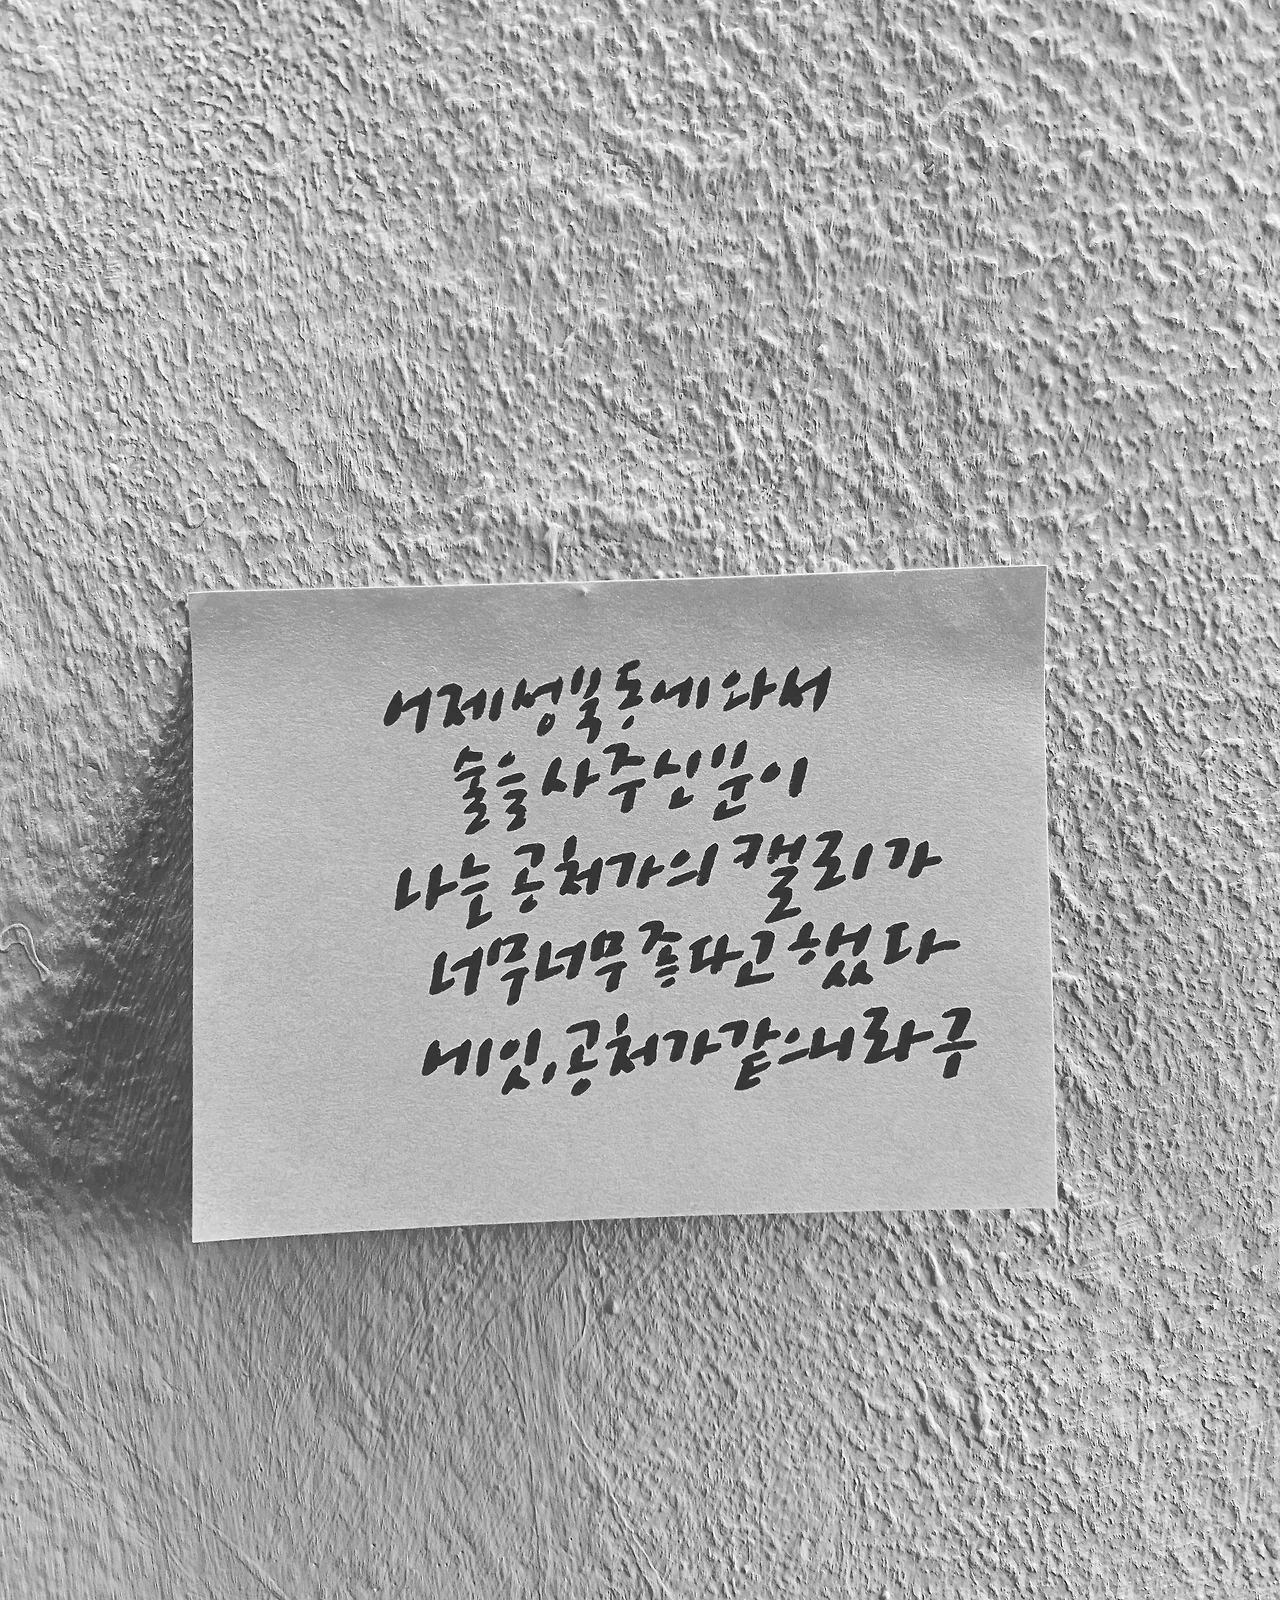 어제 성북동에 와서
술을 사 주신 분이
나는 공처가의 캘리가
너무너무 좋다고 했다
네잇, 공처가 같으니라구